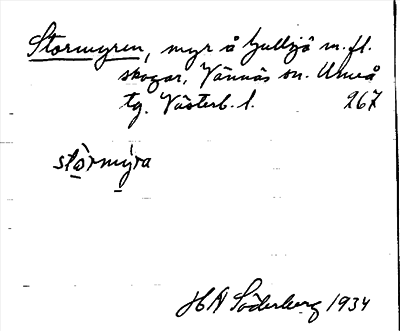 Stormyren, myr å Gullsjö m. fl.
skogar, Vännäs sn. Umeå
tg. Västerb. l. 267
stòrmýra
H A Söderberg 1934